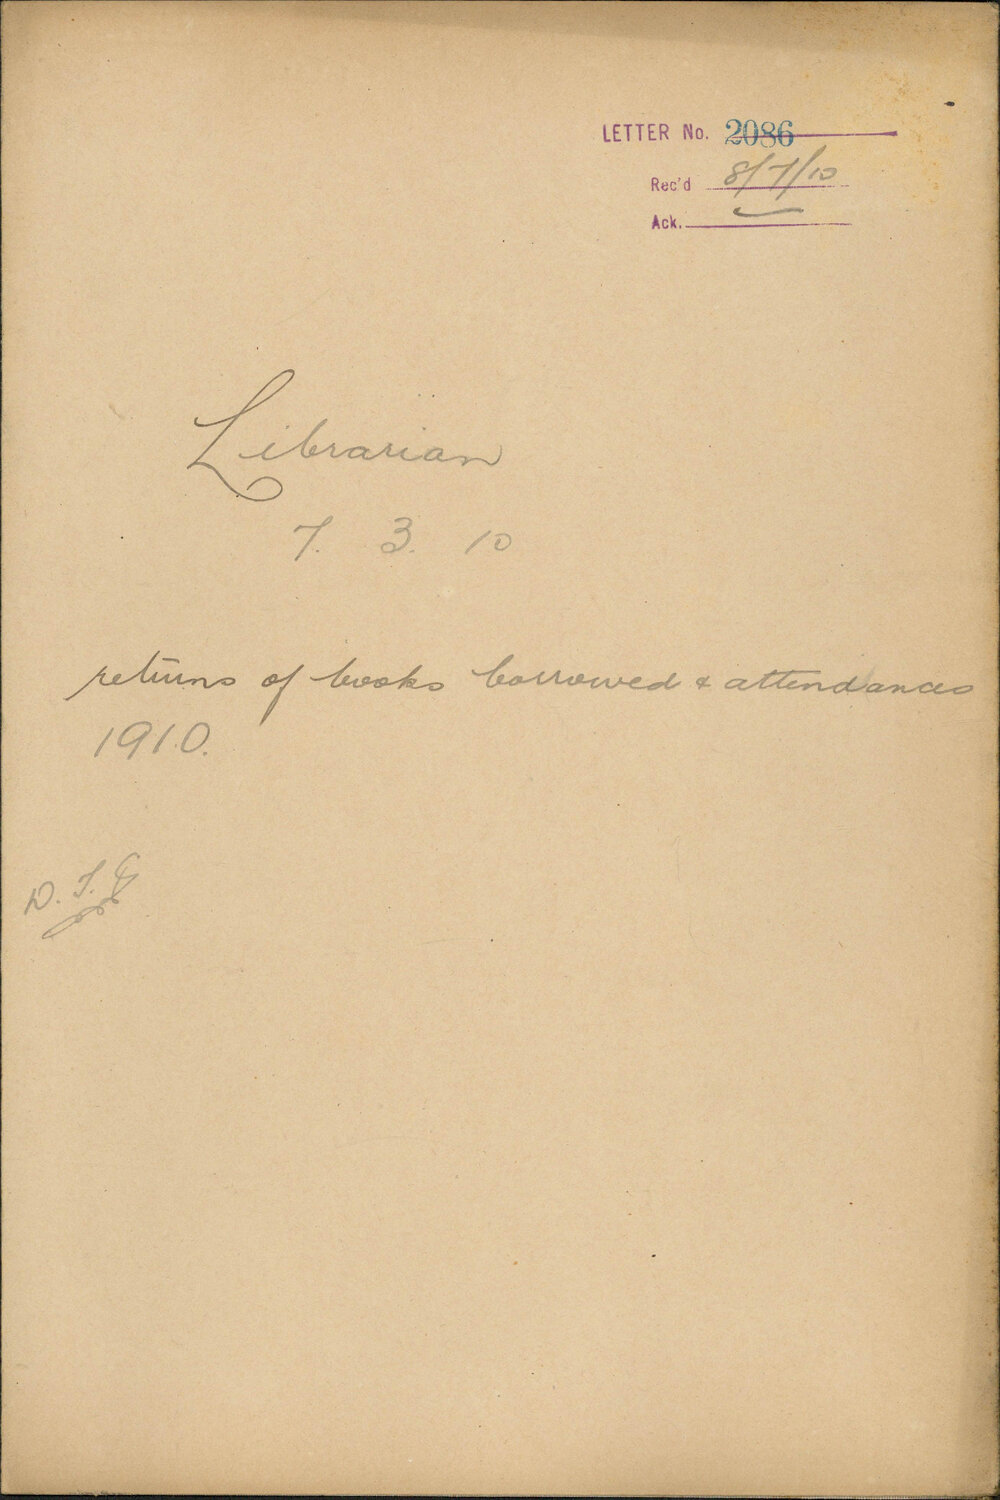 LETTER No. 2086
Rec'd 8/7/10
Ack.
Librarian
7. 3. 10
returns of books borrowed & attendances
1910.
D. T. G